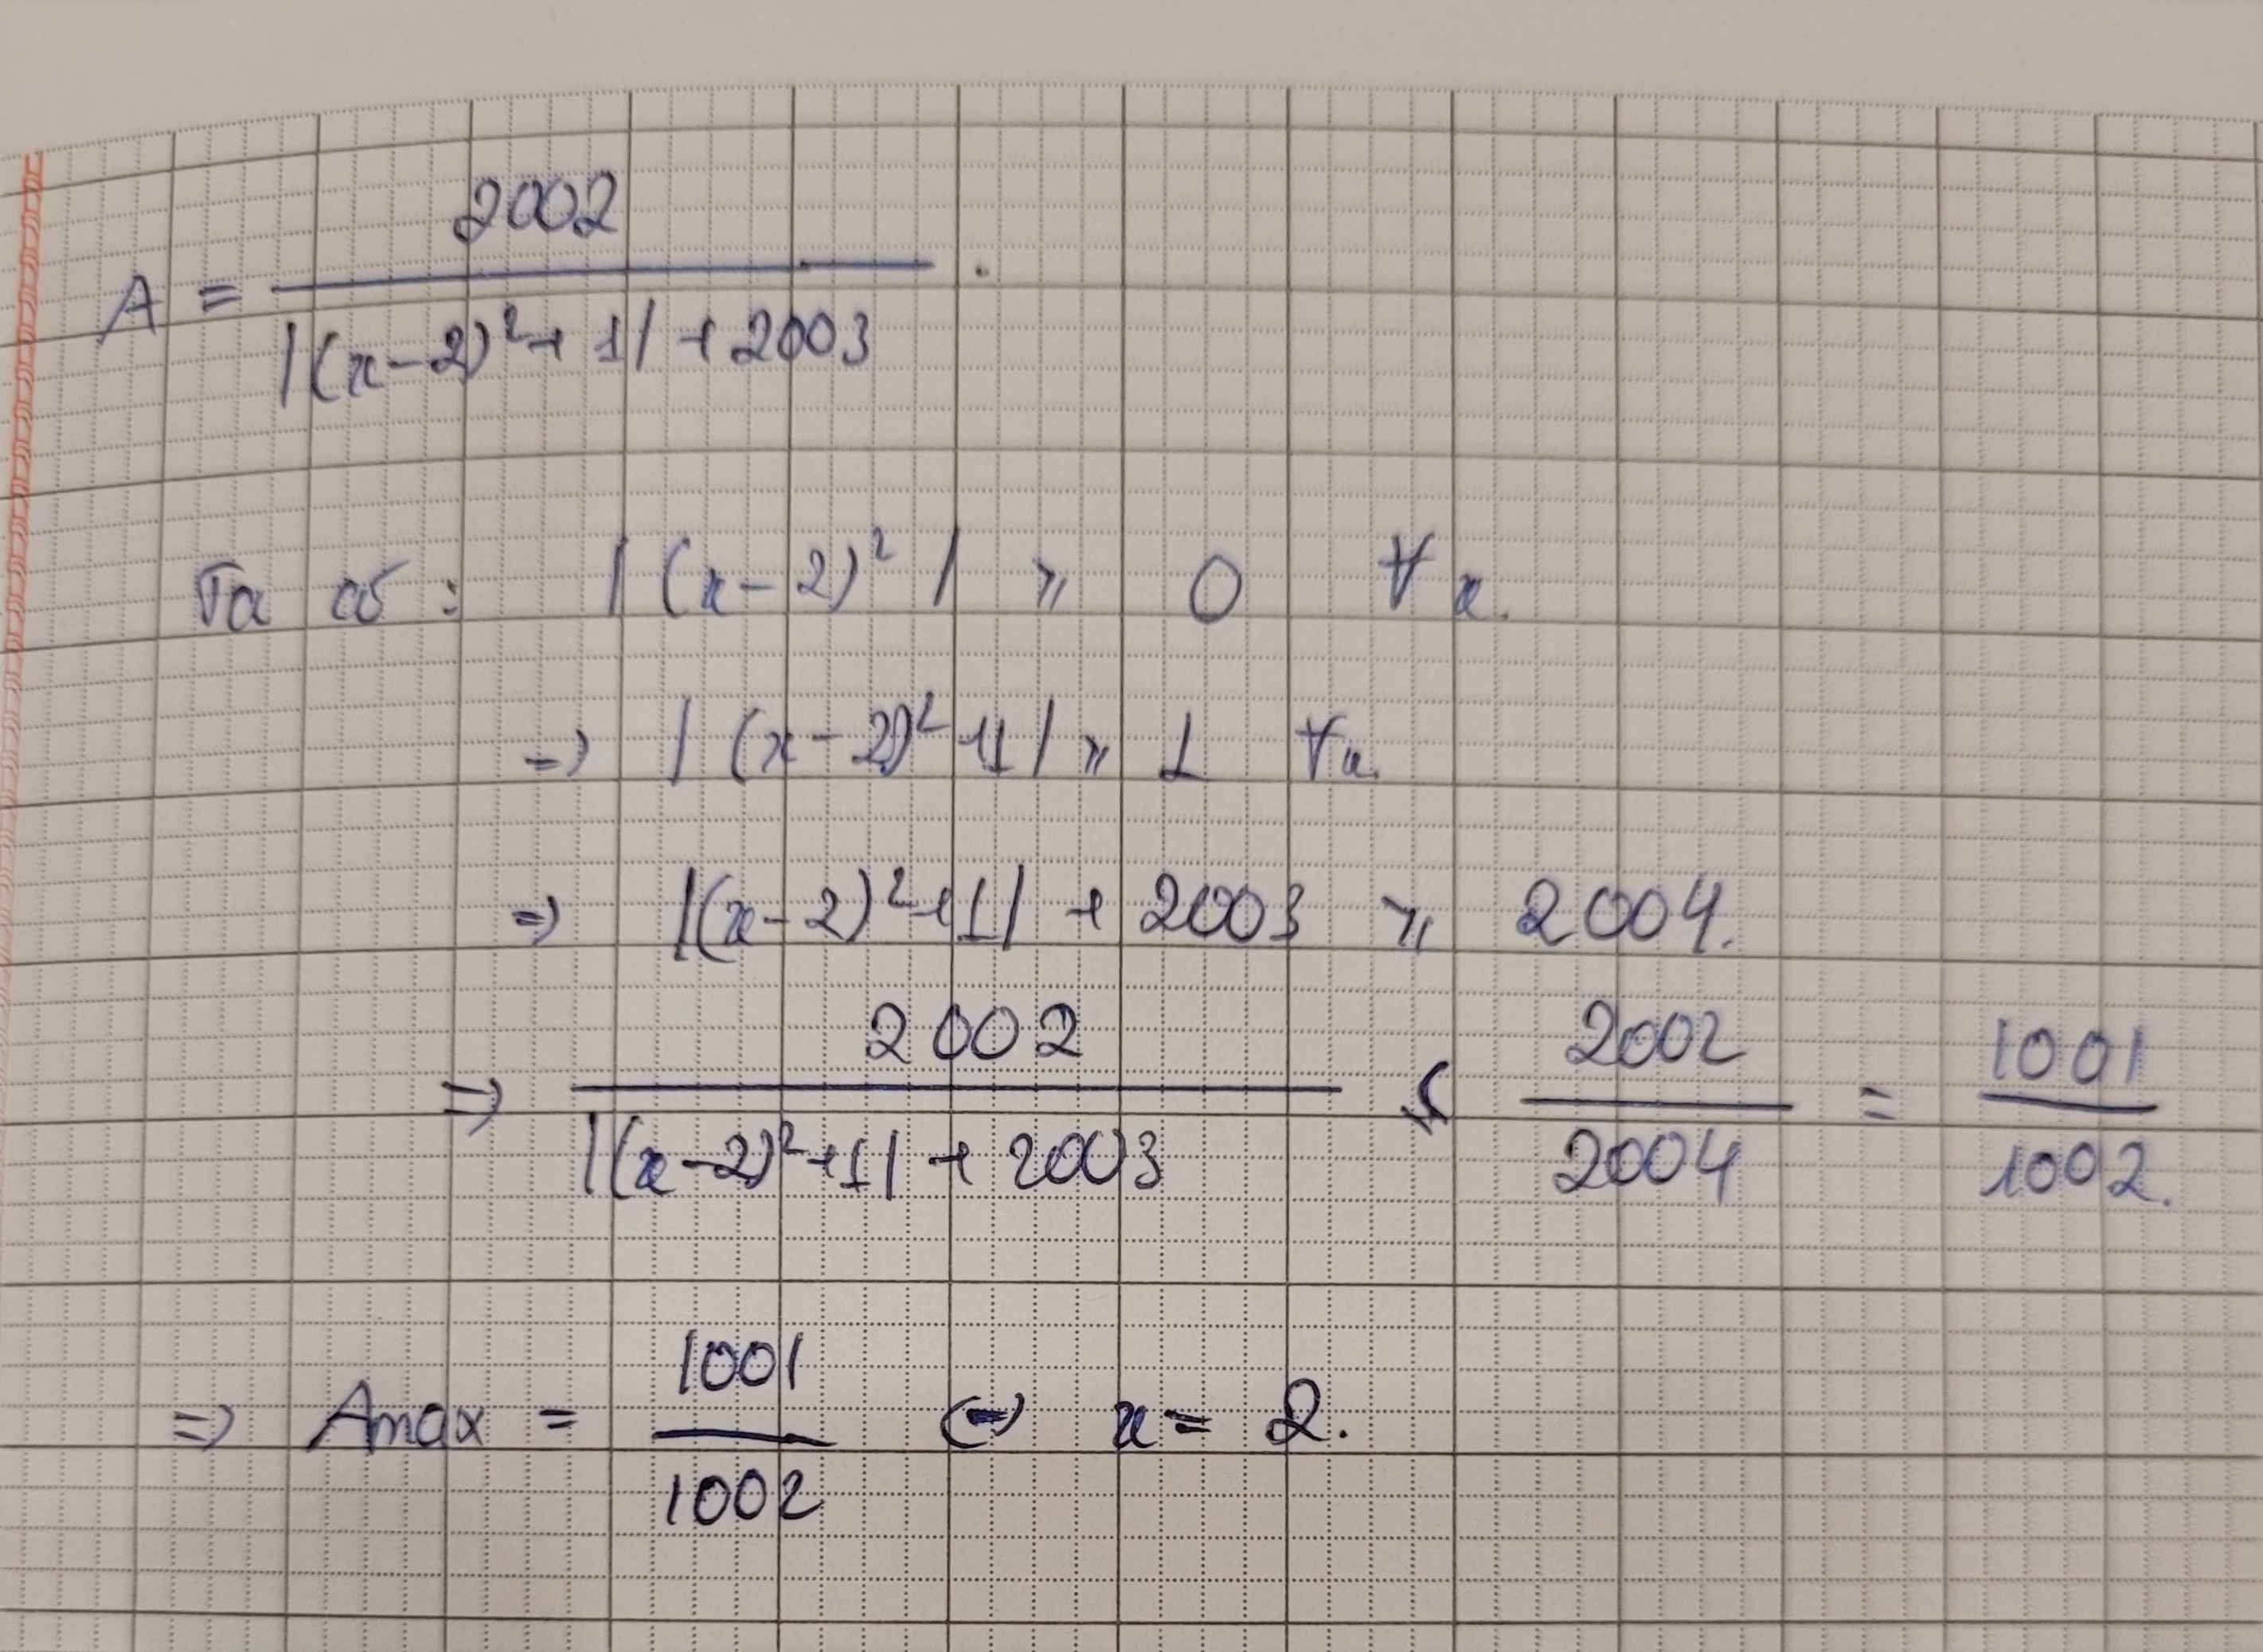 A = 2002 / (|(x-2)²+1| + 2003) .
Ta có : |(x-2)²| ≥ 0 ∀x.
=> |(x-2)²+1| ≥ 1 ∀x.
=> |(x-2)²+1| + 2003 ≥ 2004.
=> 2002 / (|(x-2)²+1| + 2003) ≤ 2002 / 2004 = 1001 / 1002.
=> Amax = 1001 / 1002 <=> x = 2.